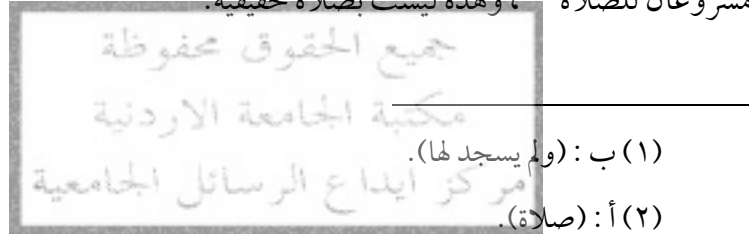 مشروعان للصلاة ، وهذه ليست بصلاة حقيقية.
جميع الحقوق محفوظة
مكتبة الجامعة الاردنية
مركز ايداع الرسائل الجامعية
(١) ب : (ولم يسجد لها).
(٢) أ : (صلاة).